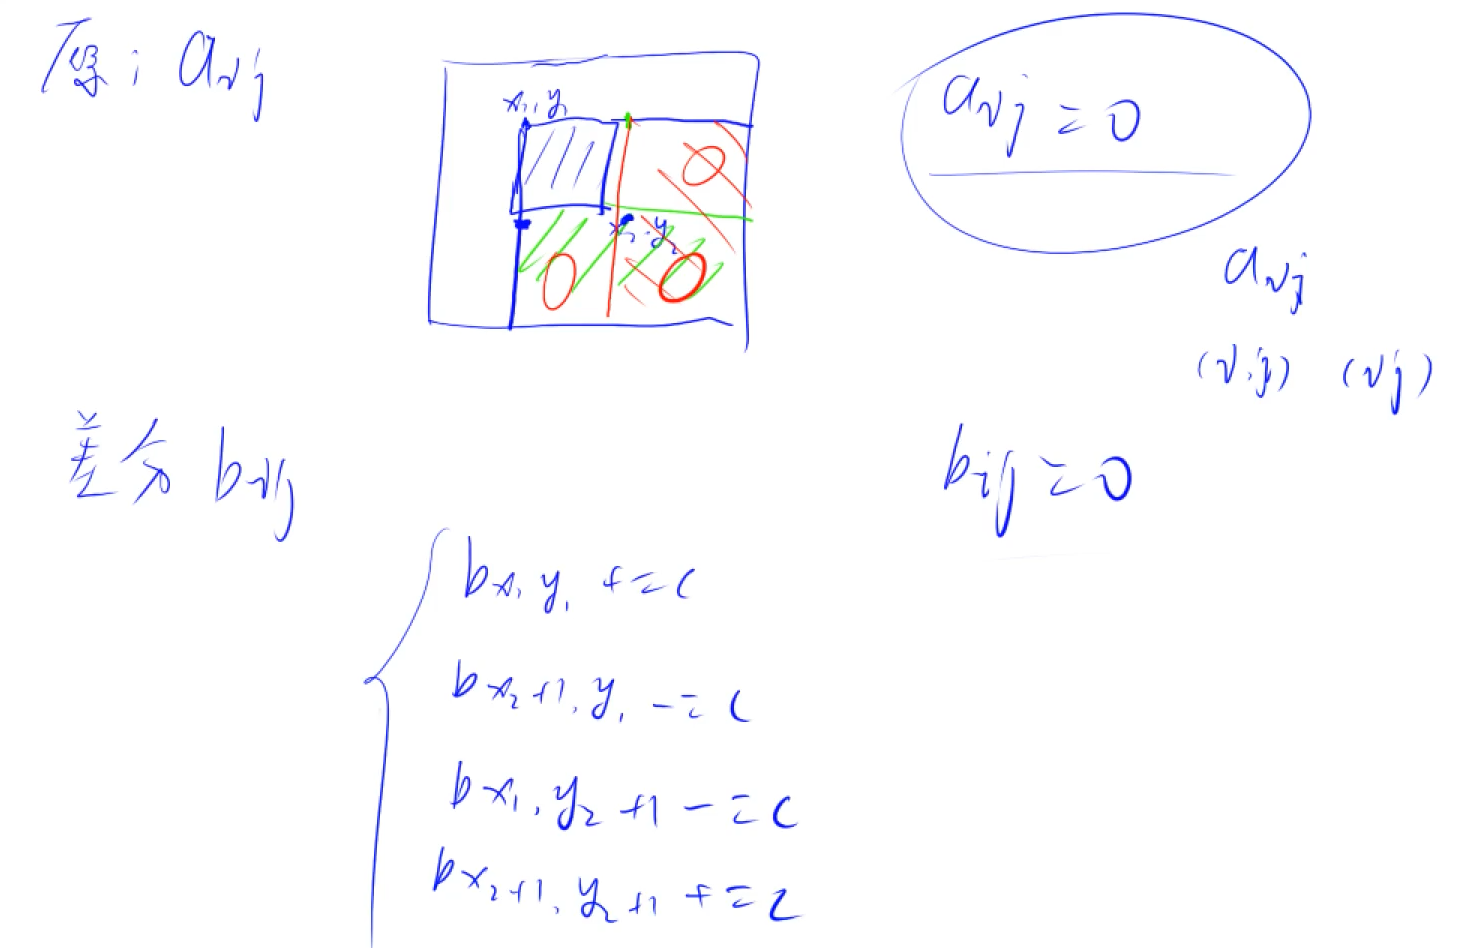 原: aij
x1, y1
0
x2, y2
0
0
aij = 0
aij
(i, j) (i j)
差分 bij
bij = 0
bx1 y1 += c
bx2+1, y1 -= c
bx1, y2+1 -= c
bx2+1, y2+1 += c